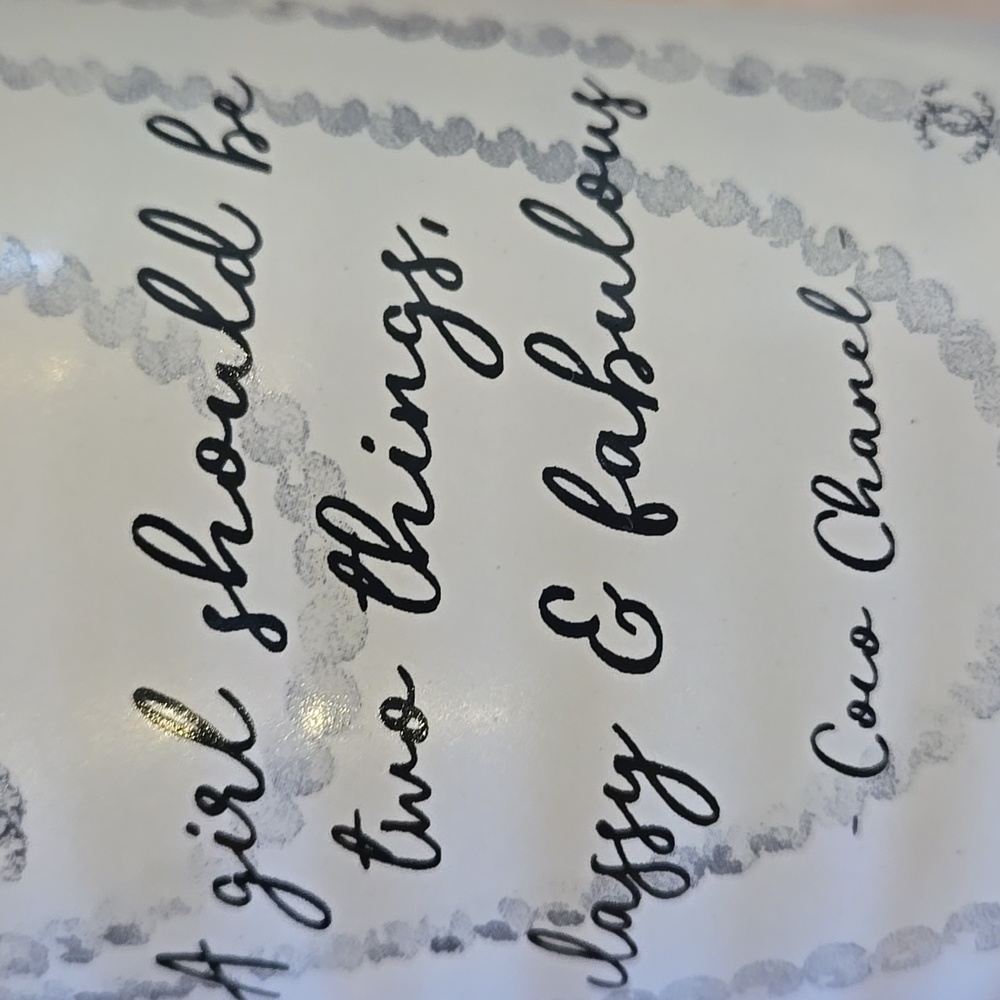 A girl should be
two things,
classy & fabulous
- Coco Chanel